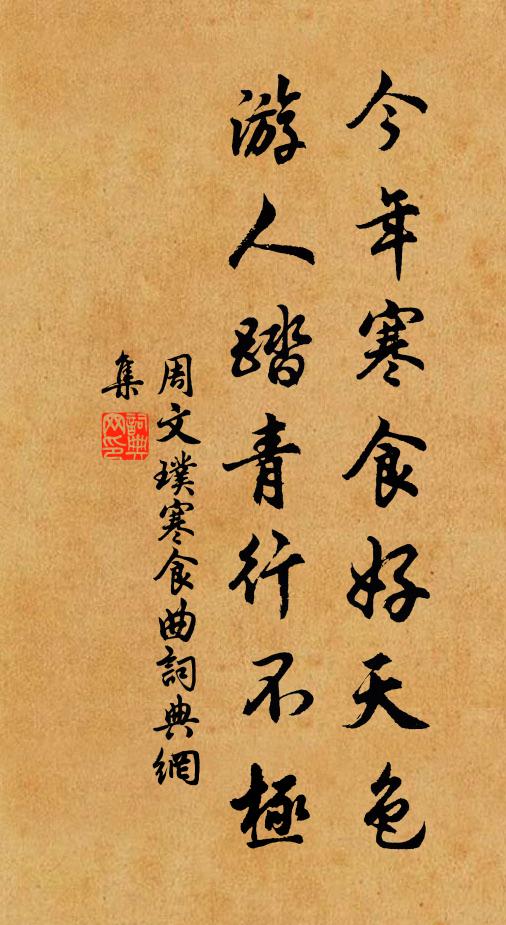 今年寒食好天色
游人踏青行不極
周文璞寒食曲詞典網
集
詞典
网印